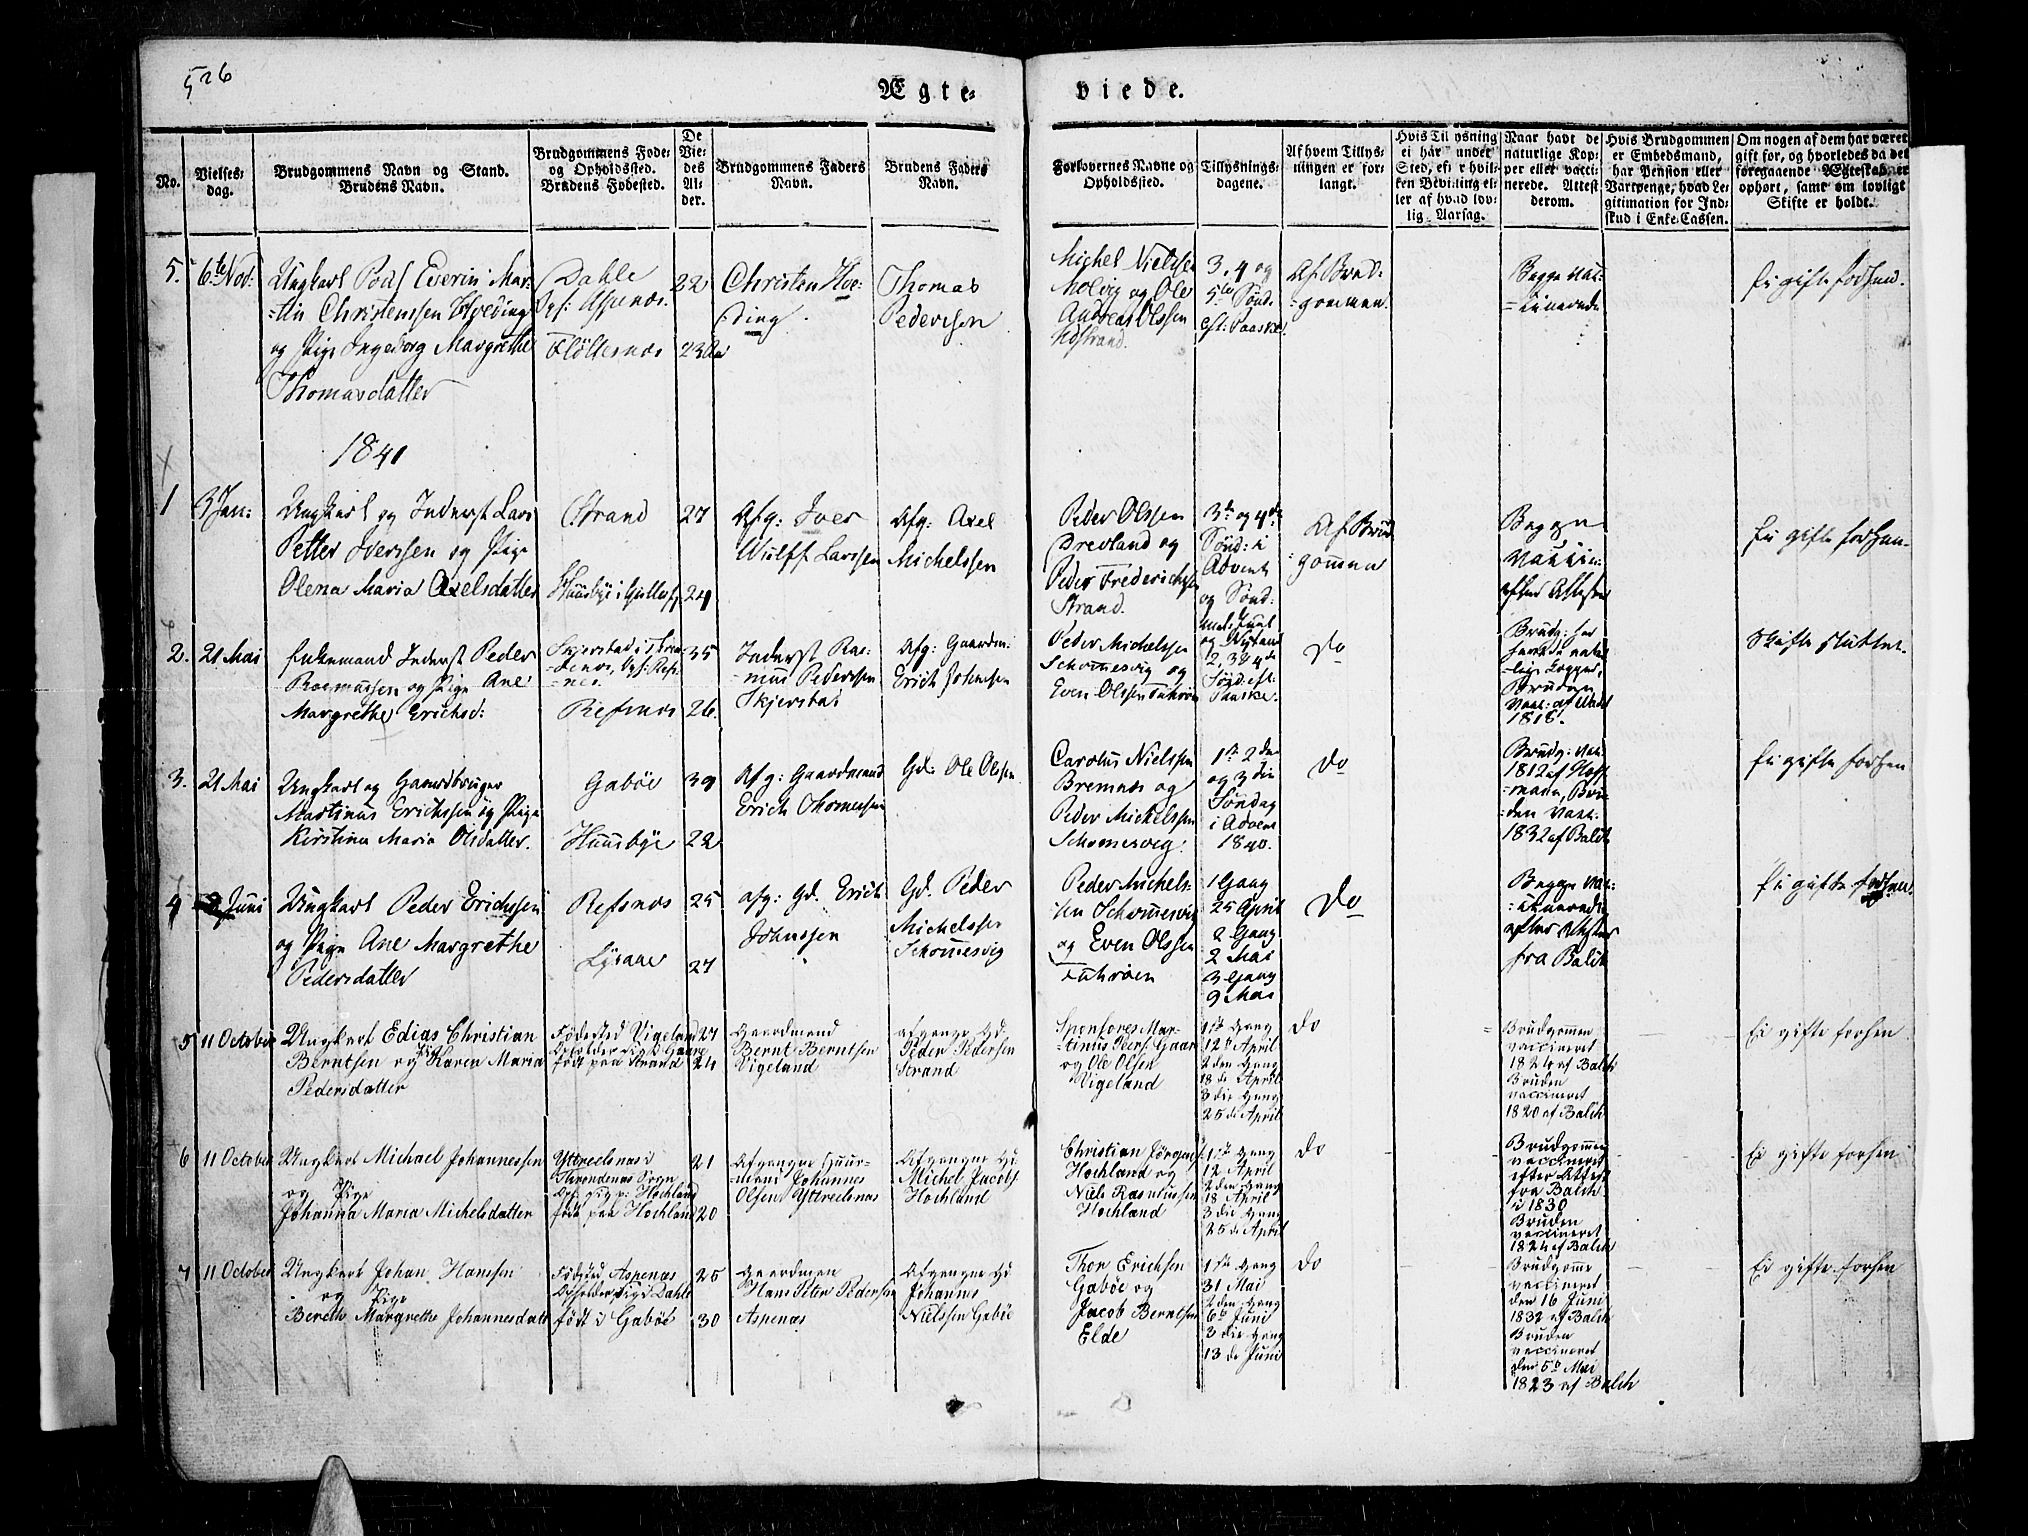 526
Ægte-
viede.
No.
Vielses-
dag.
Brudgommens Navn og Stand.
Brudens Navn.
Brudgommens Føde-
og Opholdssted.
Brudens Fødested.
De
Vie-
des
Al-
der.
Brudgommens Faders
Navn.
Brudens Faders
Navn.
Forlovernes Navne og
Opholdssted.
Tillysnings-
dagene.
Af hvem Tillys-
ningen er for-
langt.
Hvis Tillysning
ei har fundet
Sted, efter hvil-
ken Bevilling el-
ler af hvad lov-
lig Aarsag.
Naar havt de
naturlige Kop-
per eller vacci-
nerede. Attest
derom.
Hvis Brudgommen
er Embedsmand,
har Pension eller
Vartpenge, hvad Le-
gitimation for Ind-
skud i Enke-Cassen.
Om nogen af dem har været
gift før, og hvorledes da det
foregaaende Ægteskab er
ophørt, samt om lovligt
Skifte er holdt.
5. 6te Nov:
Ungkarl Poul Everin Mar-
=tin Christenssen Hveding
og Pige Ingeborg Margrethe
Thomasdatter
Dahle
Aspenæs
Flöttenæs
22
23
Christen Hve-
ding.
Thomas
Pederssen
Michel Nielssen
Molvig og Ole
Andreas Olssen
3. 4 og
5te Sönd:
eft: Paaske.
Af Brud-
=gommen.
Begge vac-
=cinerede
Ei gifte forhen.
1841
1
3 Jan:
Ungkarl og Inderst Lars
Petter Iverssen og Pige
Olena Maria Axelsdatter
Strand
Huusbye i
27
24
Afg: Iver
Wulff Larssen
Afg: Axel
Michelssen
Peder Olssen
Drevland og
Peder Frederichssen
Strand.
3de og 4de
Sönd: i
Advent
og Sönd:
mel: Juul
og Nytaar
Af Brud
gommen
Begge
vaccin:
efter Attest
Ei gifte forhen-
2. 21 Mai
Enkemand Inderst Peder
Rasmussen og Pige Ane
Margrethe Erichsd:
Skjerstad
Refsnæs
35
26.
Inderst Ras-
mus Pederssen
Skjerstad
Afg: Gaardm:
Erich Johnssen
Peder Michelssen
Schomesvig og
Even Olssen Fuhröen
2, 3 & 4de
Sönd: eft:
Paaske.
Do
Brudg: har
havt de natur
=lige Kopper,
Bruden
vacc: af
1818.
Skifte sluttet.
3. 21 Mai
Ungkarl og Gaardbruger
Martinus Erichssen og Pige
Kirstina Maria Olsdatter.
Gaböe
Huusbye
39
22
Afg: Gaardmand
Erich Thomessen
Gd: Ole Olssen
Carolus Nielssen
Bremnæs og
Peder Michelssen
Schomesvig.
1ste 2den
og 3die
Söndag
i Advent
1840.
Do
Brudg: vac:
1812 af Hoff-
=mann, Bru-
=den vacc:
1832 af Balch
Ei gifte forhen
4 2 Juni
Ungkarl Peder Erichssen
og Pige Ane Margrethe
Pedersdatter
Refsnæs
Lysaae
25
27
afg: Gd. Erich
Johnssen
Gd. Peder
Michelssen
Schomesvig
Peder Michels-
sen Schomesvig
og Even Olssen
Fuhröen
1 Gang
25 April
2 Gang
2 Mai
3 Gang
9 Mai
Do
Begge vac-
=cinerede
efter Attest
fra Balch
Ei gifte forhen.
5 11 October
Ungkarl Edias Christian
Berntsen og Pige Karen Maria
Pedersdatter
Födested Vigeland
Opholder sig i Gaare
födt paa Strand
27
24
Gaardmand
Bernt Berntsen
Vigeland
afgangne Gd.
Peder Pedersen
Strand
Sponsores Mar-
tinus Peders: Gaare
og Ole Olsen
Vigeland
1ste Gang
12te April
2den Gang
18de April
3die Gang
25de April
Do
Brudgommen
vaccineret
1824 af Balch
Bruden
vaccineret
1820 af Balch
Ei gifte forhen
6 11 October
Ungkarl Michael Johannessen
og Pige
Johanna Maria Michelsdatter
Yttreelsnæs i
Throndenæs Sogn
Oph: sig p: Hochland
födt paa Hochland
21
20
Afgangne Huus-
mand Johannes
Olsen Yttreelsnæs
Afgangne Gd.
Michel Jacobs
Hochland
Christian Jörgens
Hochland og
Niels Rasmussen
Hochland
1ste Gang
12 April
2den Gang
18 April
3die Gang
25de April
Do
Brudgommen
vaccineret
efter Attest
fra Balch
i 1830
Bruden
vaccineret
1824 af Balch
Ei gifte forhen
7 11 October
Ungkarl Johan Hanssen
og Pige
Bereth Margrethe Johannesdatt
Födested Aspenæs
Opholder sig i Dahle
födt i Gaböe
25
30
Gaardman
Hans Peter Pedersen
Aspenæs
Afgangne Gd.
Johannes
Nielssen Gaböe
Thor Erichsen
Gaböe og
Jacob Berntsen
Elde
1ste Gang
31 Mai
2den Gang
6te Juni
3die Gang
13de Juni
Do
Brudgomme
vaccineret
den 16 Juni
1832 af Balch
Bruden
vaccineret
den 5te Mai
1823 af Balch
Ei gifte forhen